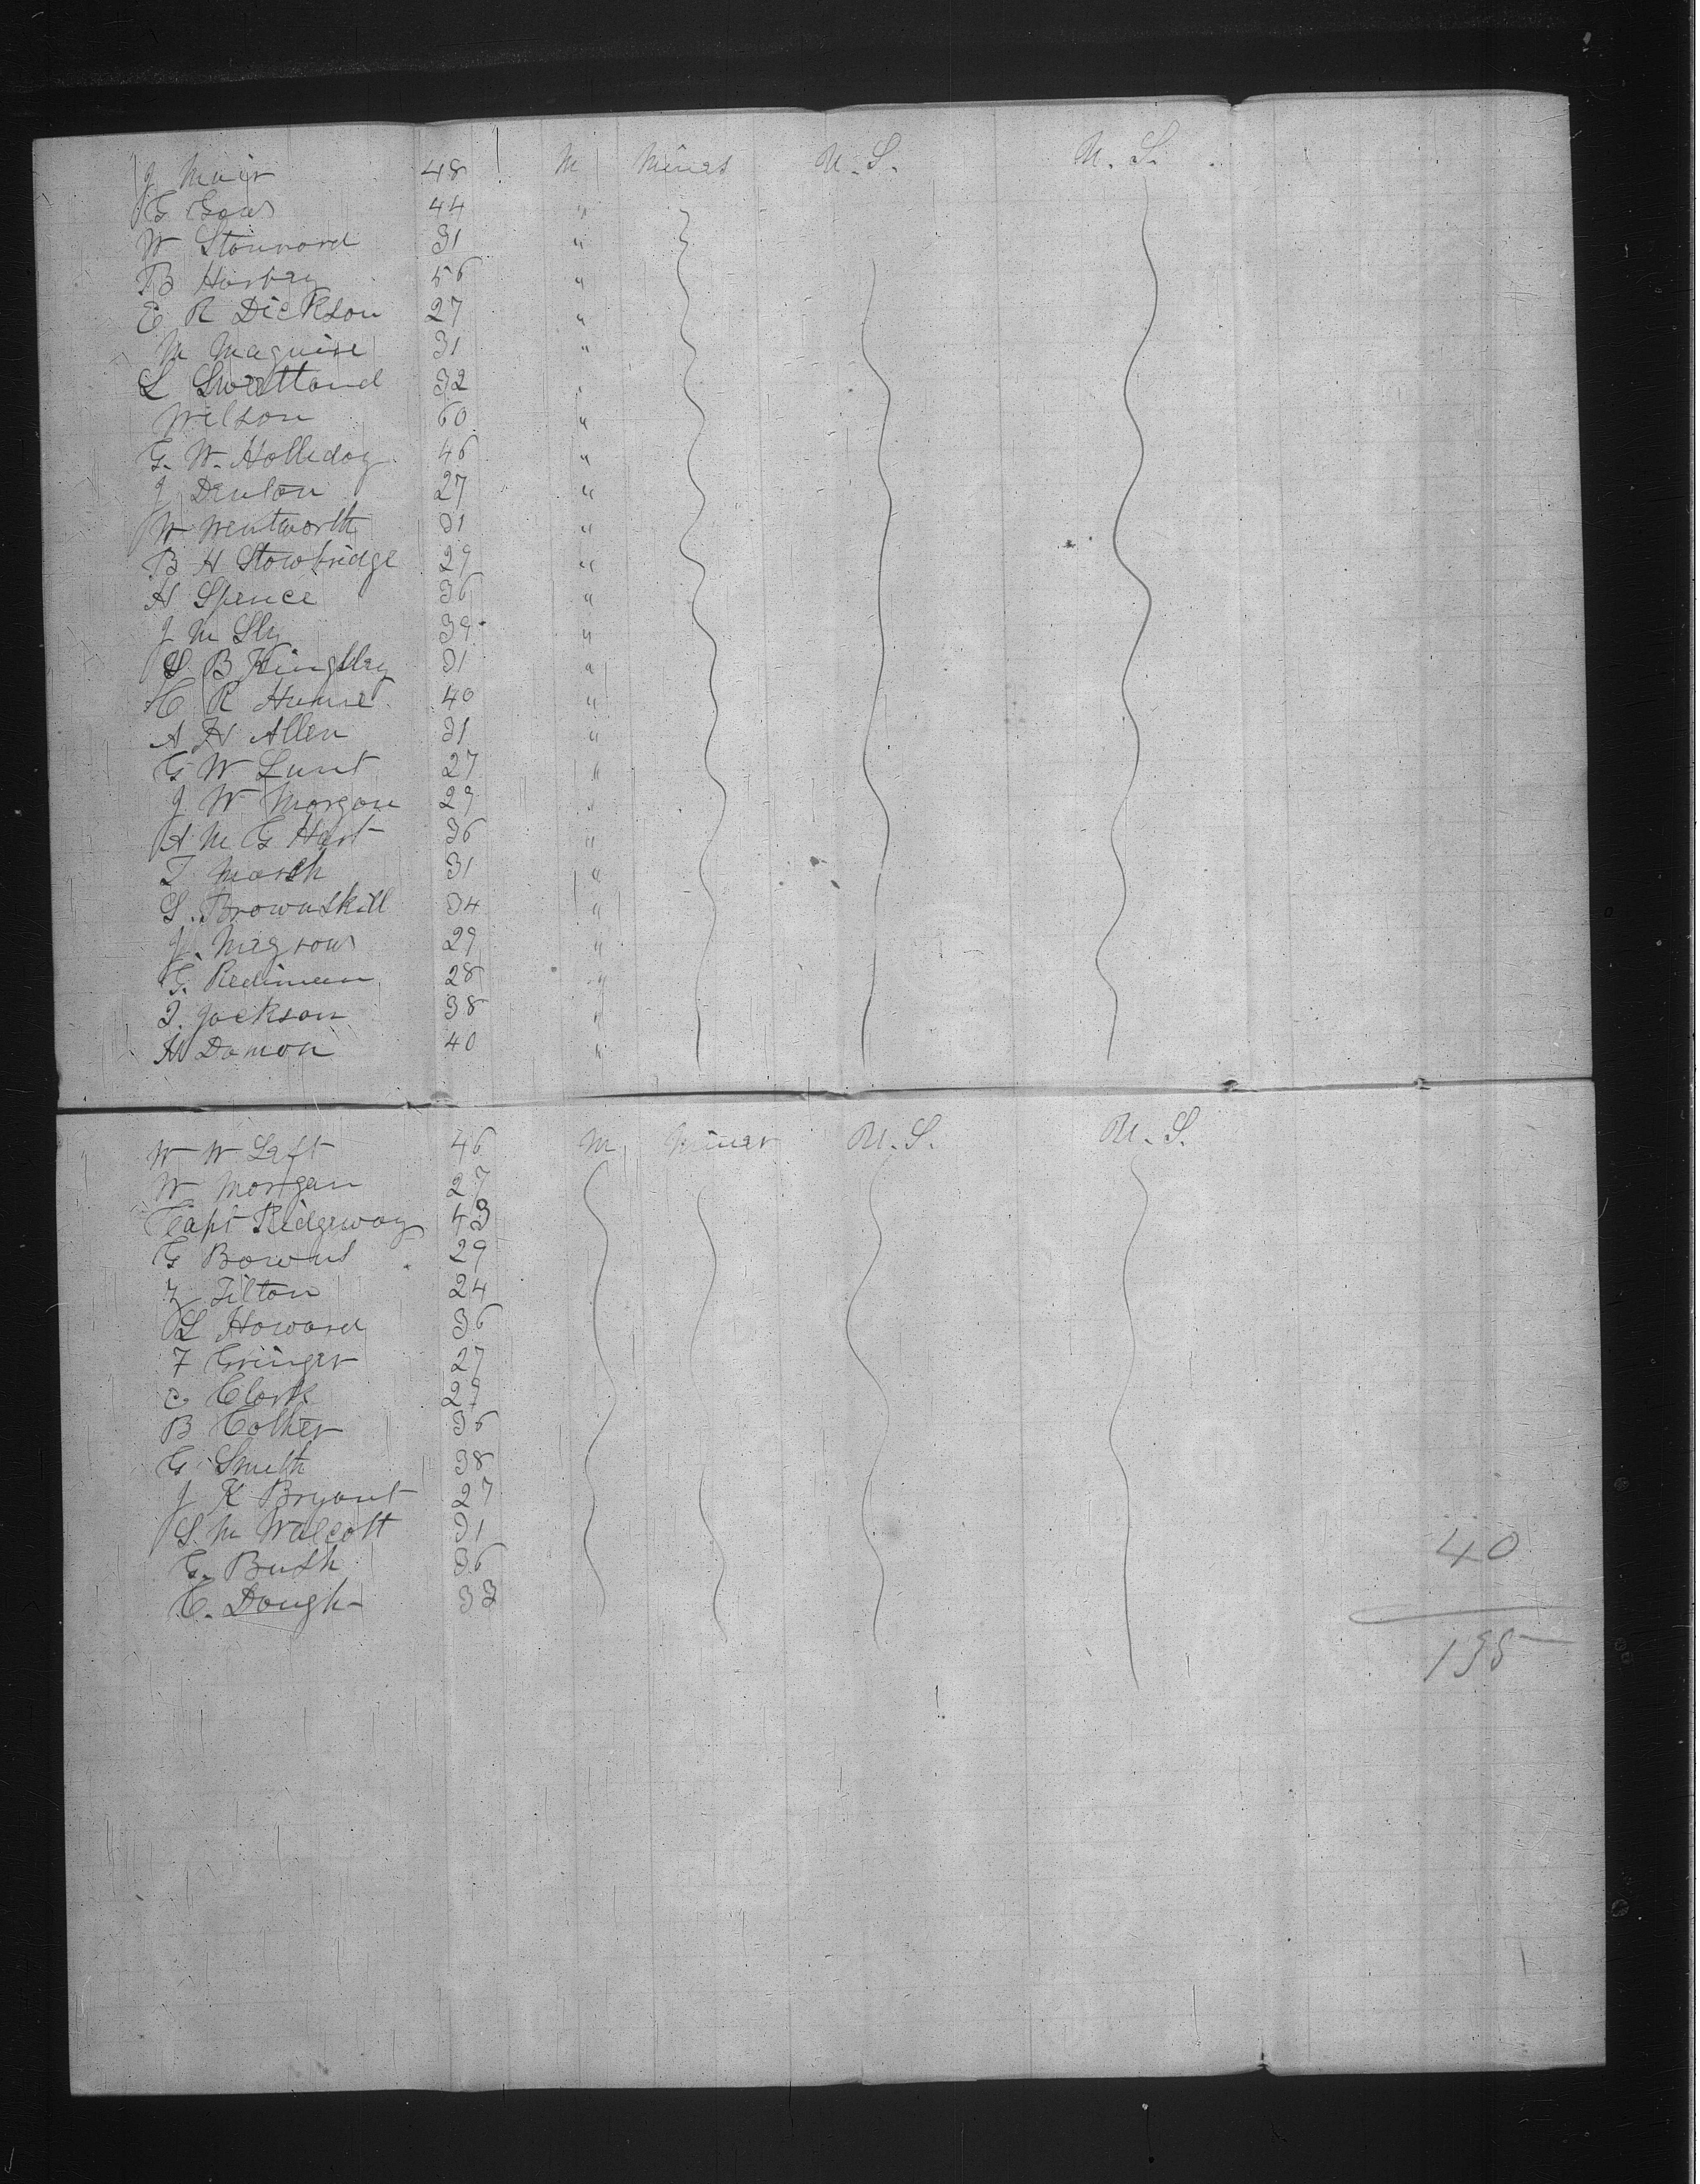 J Muir 48 M Miner U.S. U.S.
G Gove 44 "
W Stonnard 31 "
B Hursey 56 "
E R Dickson 27 "
M Maguire 31 "
L Sweatland 32 "
Wilson 60 "
G. W. Holliday 46 "
J Denton 27 "
W Wentworth 31 "
B H Stowbridge 29 "
H Spence 36 "
J M Sly 39 "
S B Kingsley 31 "
C R Hume 40 "
A H Allen 31 "
G W Lunt 27 "
J W Morgan 29 "
A M G Hart 36 "
T March 31 "
S. Brownskill 34 "
J. 29 "
G. Rediman 28 "
T. Jackson 38 "
H Damon 40 "
W W Laft 46 M Miner U.S. U.S.
W Morgan 27
Capt Ridgeway 43
G Bowns 29
Z Tilton 24
L Howard 36
F Gringer 27
C. Clark 29
B Colher 36
G. Smith 38
J K Bryant 27
S. M Walcott 31
G. Bush 36
C. Dough 33
40
135